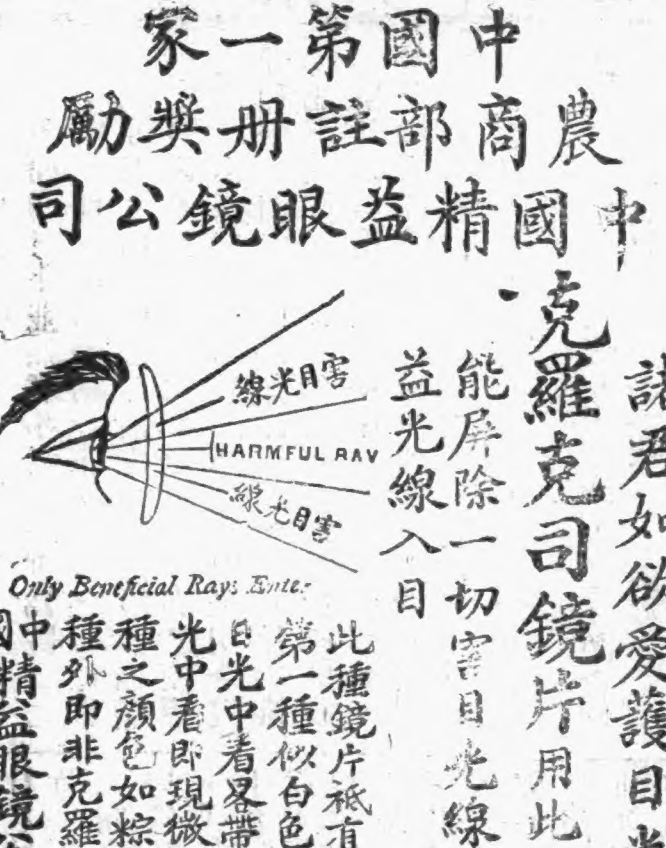 中國第一家
農商部註册奬勵
中國精益眼鏡公司
諸君如欲愛護目光
克羅克司鏡片用此
能屏除一切害目光線
益光線入目
害目光線
HARMFUL RAY
害目光線
Only Beneficial Rays Enter
此種鏡片祗有
第一種似白色
日光中看畧帶
光中看即現微
種之顔色如粽
種外即非克羅
中精益眼鏡公
國